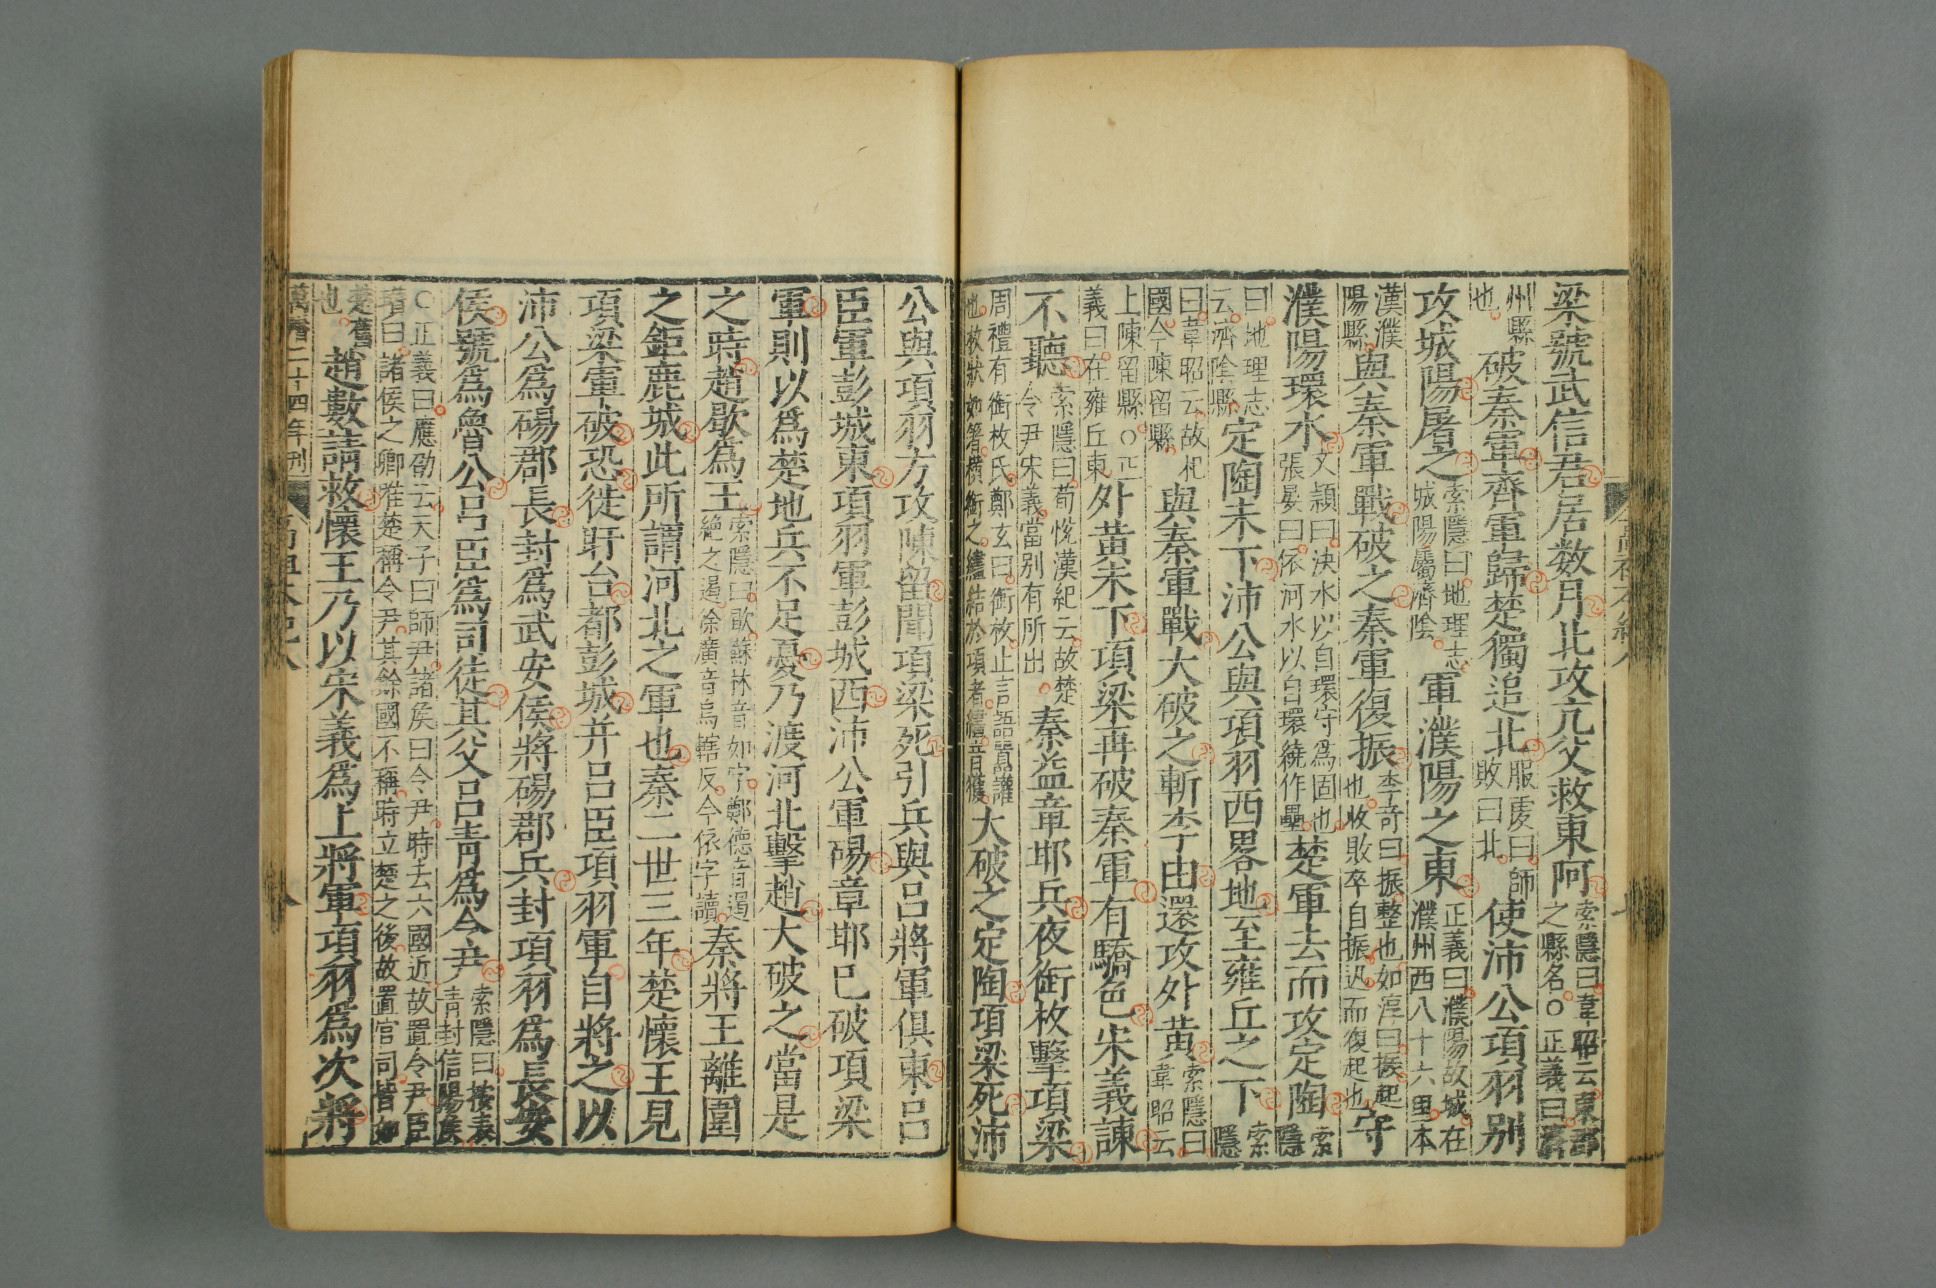 梁號武信君居数月北攻亢父救東阿索隱曰韋昭云東郡之縣名○正義曰濟
州縣也破秦軍齊軍歸楚獨追北服虔曰師敗曰北使沛公項羽别
攻城陽屠之索隱曰地理志城陽屬濟陰軍濮陽之東正義曰濮陽故城在濮州西八十六里本
漢濮陽縣與秦軍戰破之秦軍復振李奇曰振整也如淳曰振起也收敗卒自振迅而復起也守
濮陽環水文穎曰決水以自環守爲固也張晏曰依河水以自環繞作壘楚軍去而攻定陶索隱
曰地理志云濟陰縣定陶未下沛公與項羽西畧地至雍丘之下索隱
曰韋昭云故杞國今陳留縣與秦軍戰大破之斬李由還攻外黃索隱曰韋昭云
上陳留縣○正義曰在雍丘東外黃未下項梁再破秦軍有驕色宋義諫
不聽索隱曰荀悅漢紀云故楚令尹宋義當别有所出秦益章邯兵夜銜枚擊項梁
周禮有銜枚氏鄭玄曰銜枚止言語嚻讙也枚狀如箸橫銜之繣結於項者繣音獲大破之定陶項梁死沛
公與項羽方攻陳留聞項梁死引兵與吕將軍俱東吕
臣軍彭城東項羽軍彭城西沛公軍碭章邯已破項梁
軍則以爲楚地兵不足憂乃渡河北擊趙大破之當是
之時趙歇爲王索隱曰歇蘇林音如字鄭德音遏絶之遏徐廣音烏轄反今依字讀秦將王離圍
之鉅鹿城此所謂河北之軍也秦二世三年楚懷王見
項梁軍破恐徙盱台都彭城并吕臣項羽軍自將之以
沛公爲碭郡長封爲武安侯將碭郡兵封項羽爲長安
侯號爲魯公吕臣爲司徒其父吕青爲令尹索隱曰按表青封信陽侯
○正義曰應劭云天子曰師尹諸侯曰令尹時去六國近故置令尹臣瓚曰諸侯之卿唯楚稱令尹其餘國不稱時立楚之後故置官司皆如
楚舊也趙數請救懷王乃以宋義爲上將軍項羽爲次將
萬曆二十四年刊
高祖本紀八
八